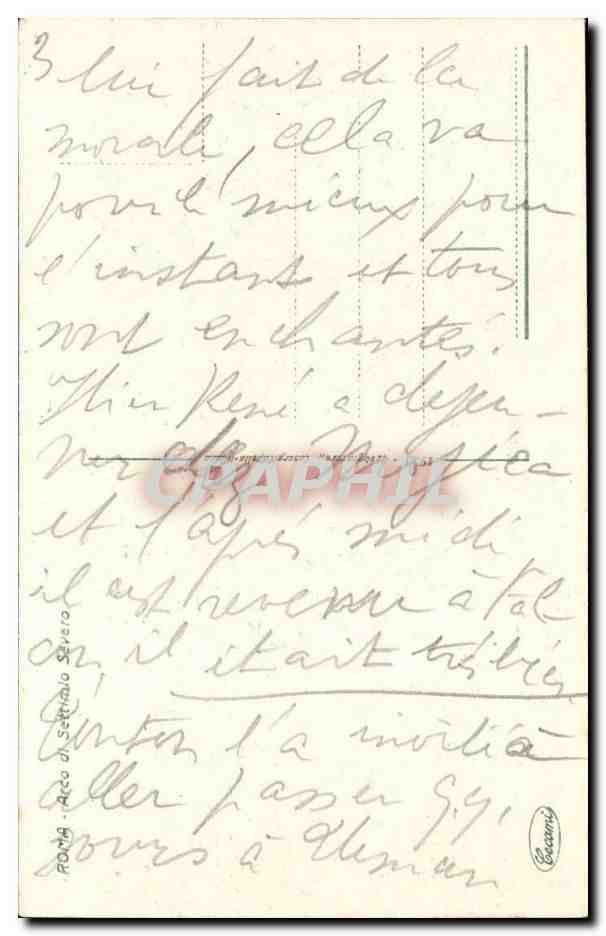 3 lui fait de la
morale, cela va
pour le mieux pour
l'instant et tous
sont enchantés.
Hier René a dejeu-
ner chez
et l'après midi
il est revenu à Tal-
on, il était très bien
l'a invité à
aller passer q.q.
jours à
ROMA - Arco di Settimio Severo
Cecami
CPAPHIL